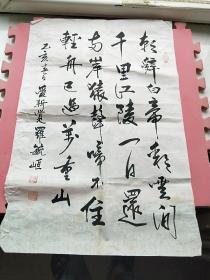 朝辭白帝彩雲間
千里江陵一日還
兩岸猿聲啼不住
輕舟已過萬重山
亥 羅毓